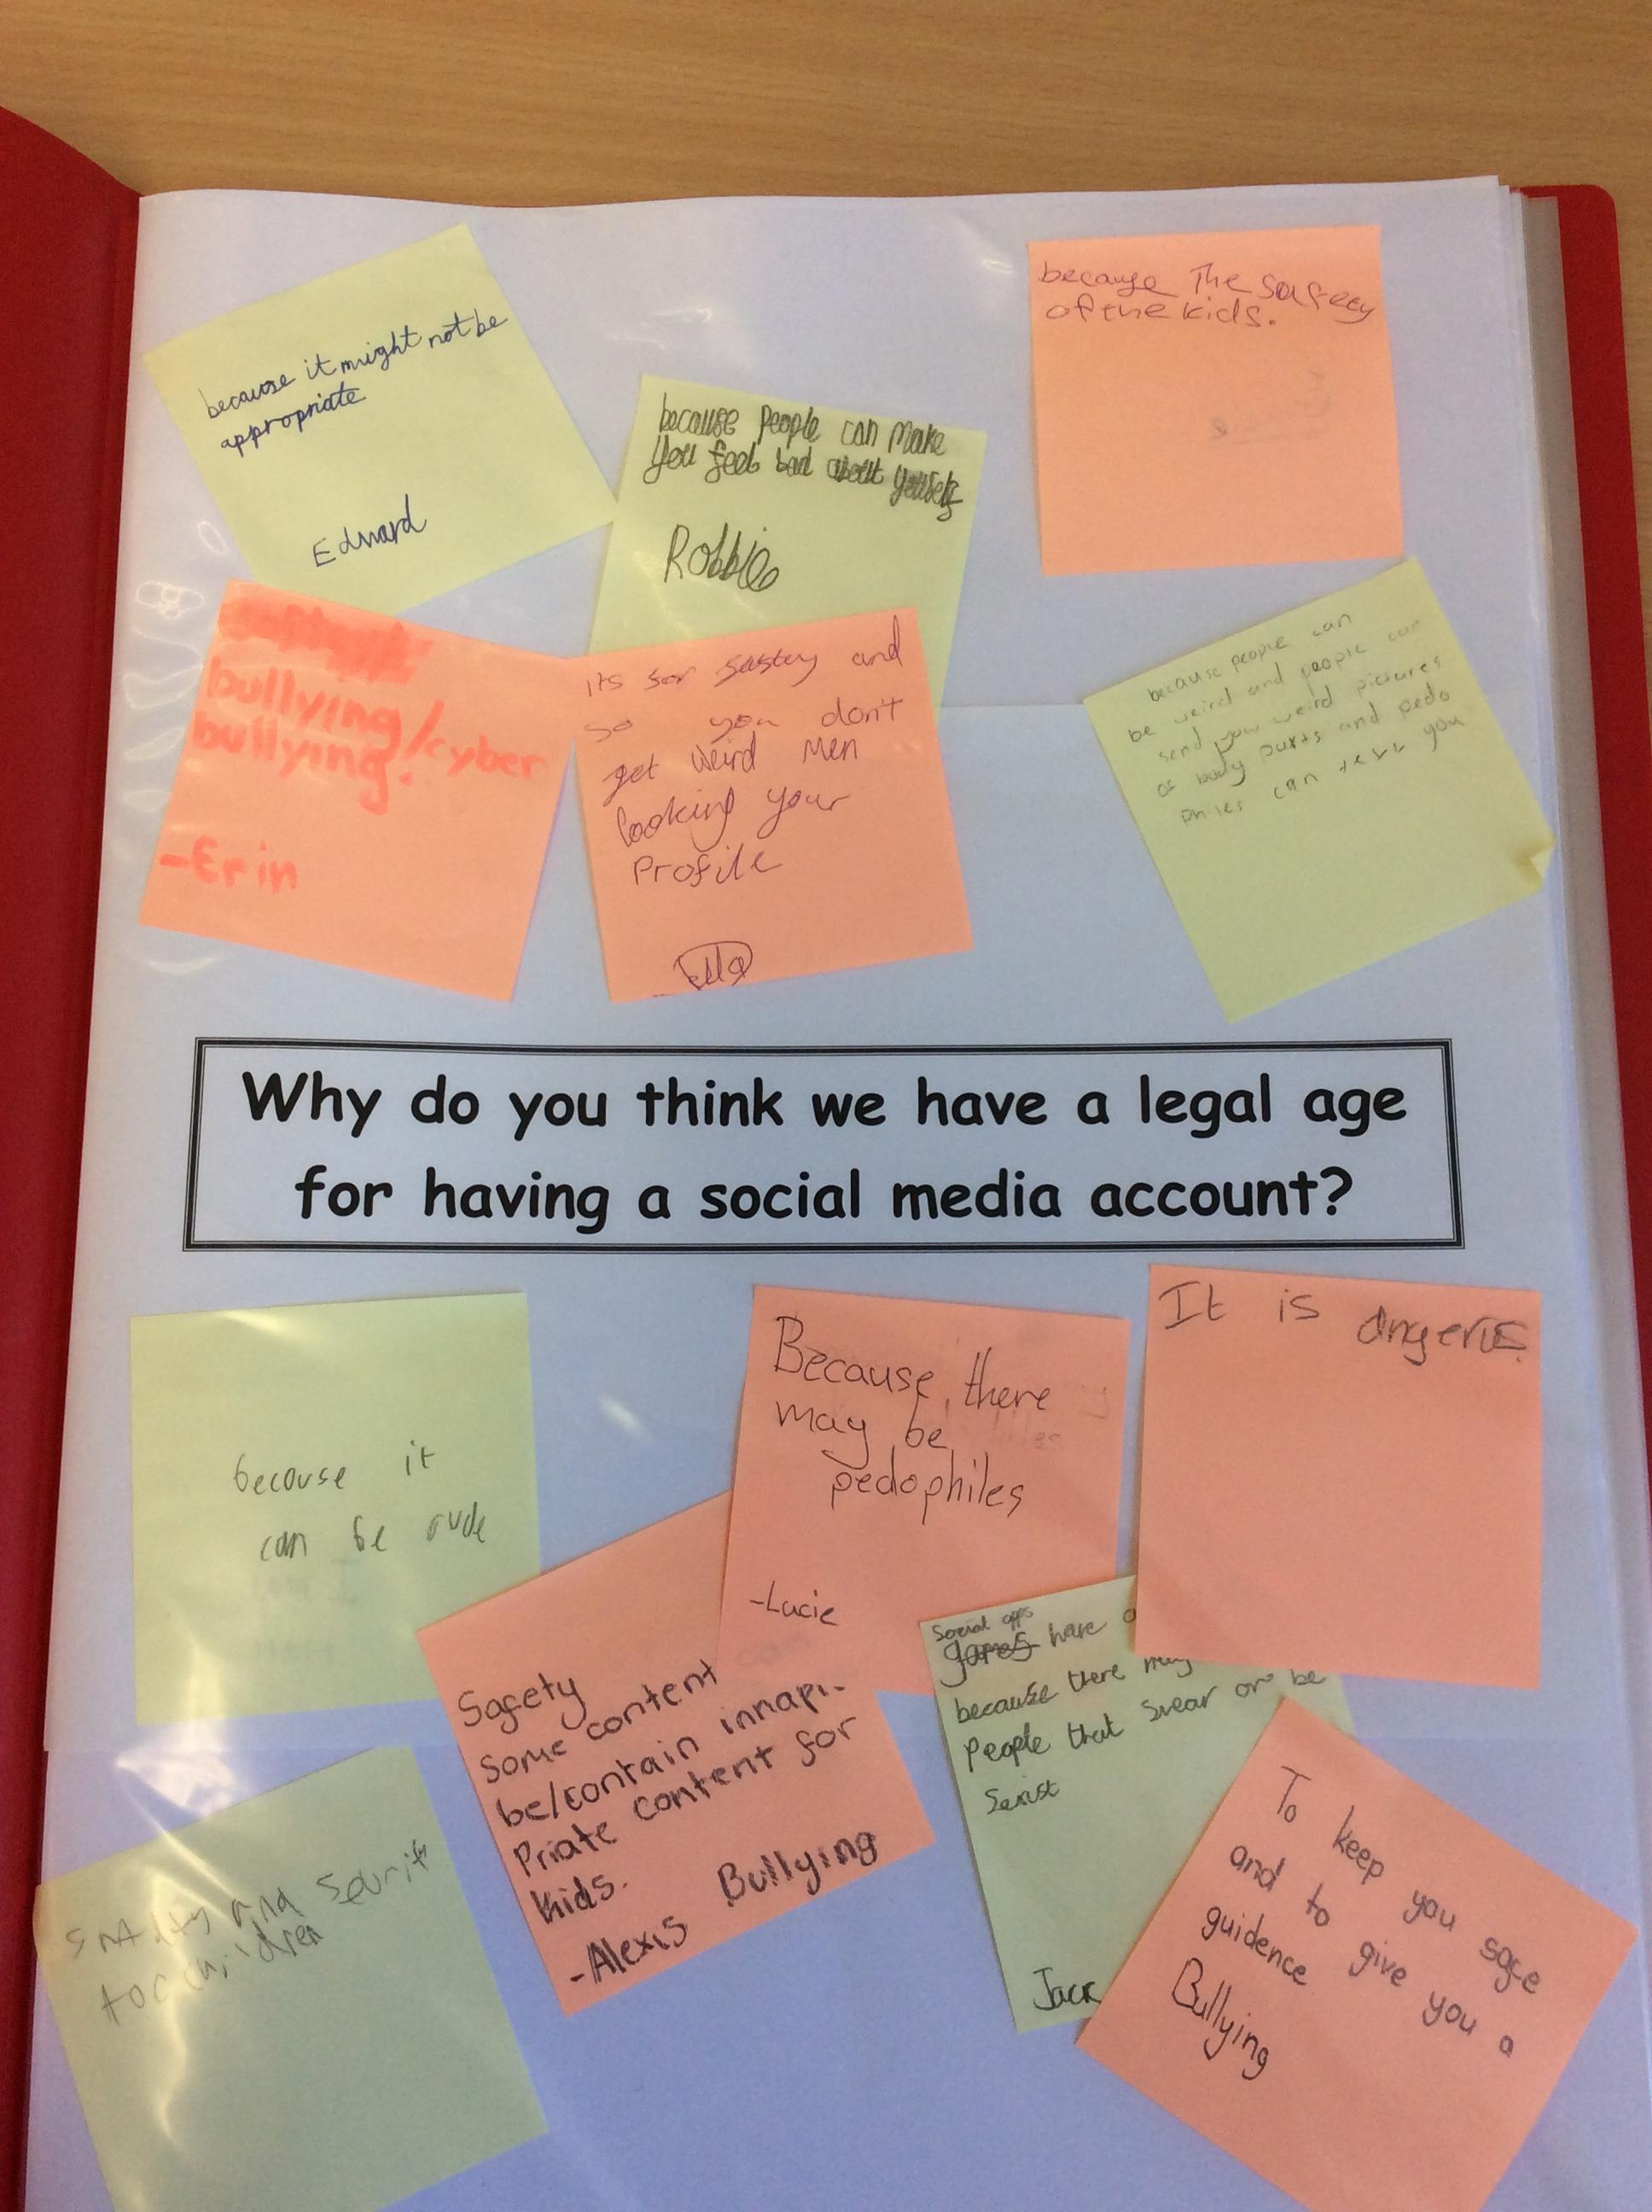 because it might not be
appropriate
Edward
because people can make
you feel bad about yourself
Robbie
because The Safety
of the kids.
bullying/cyber
bullying.
-Erin
its for
and
so you don't
get weird men
looking your
Profile
because people can
be weird and people can
send you weird pictures
of body parts and pedo
philes can
you
Why do you think we have a legal age
for having a social media account?
because it
can be rude
Because there
may be
pedophiles
-Lucie
It is
Safety
Some content
be/contain innapr-
Priate content for
Kids.
Bullying
-Alexis
Social apps
games have
because there may
People that swear or be
Sexist
Jack
and
for children
To keep you safe
and to give you a
guidence
Bullying